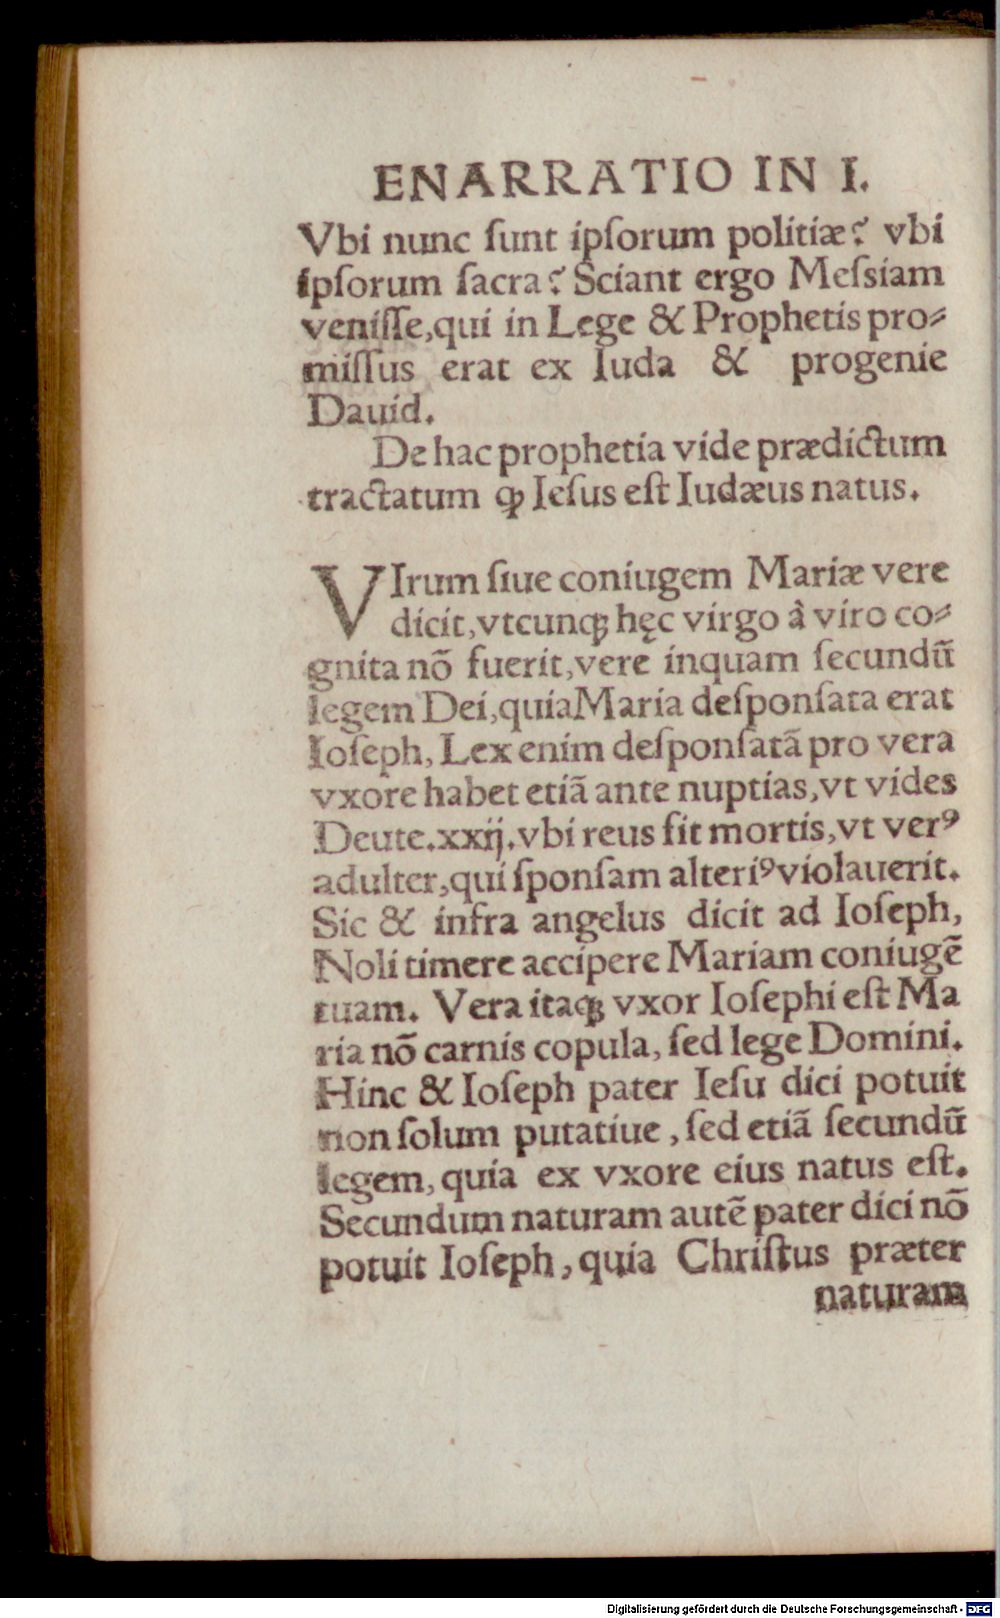 ENARRATIO IN I.
Vbi nunc ſunt ipſorum politiæ? vbi
ipſorum ſacra? Sciant ergo Meſsiam
veniſſe,qui in Lege & Prophetis pro⸗
miſſus erat ex Iuda & progenie
Dauid.
De hac prophetia vide prædictum
tractatum ꝙ Ieſus eſt Iudæus natus.
VIrum ſiue coniugem Mariæ vere
dicit,vtcunqꝫ hęc virgo à viro co⸗
gnita nõ fuerit,vere inquam ſecundũ
legem Dei,quia Maria deſponſata erat
Ioſeph, Lex enim deſponſatã pro vera
vxore habet etiã ante nuptias,vt vides
Deute.xxij.vbi reus fit mortis,vt verꝰ
adulter,qui ſponſam alteriꝰ violauerit.
Sic & infra angelus dicit ad Ioſeph,
Noli timere accipere Mariam coniugẽ
tuam. Vera itaqꝫ vxor Ioſephi eſt Ma
ria nõ carnis copula, ſed lege Domini.
Hinc & Ioſeph pater Ieſu dici potuit
non ſolum putatiue, ſed etiã ſecundũ
legem, quia ex vxore eius natus eſt.
Secundum naturam autẽ pater dici nõ
potuit Ioſeph, quia Chriſtus præter
naturam
Digitalisierung gefördert durch die Deutsche Forschungsgemeinschaft - DFG